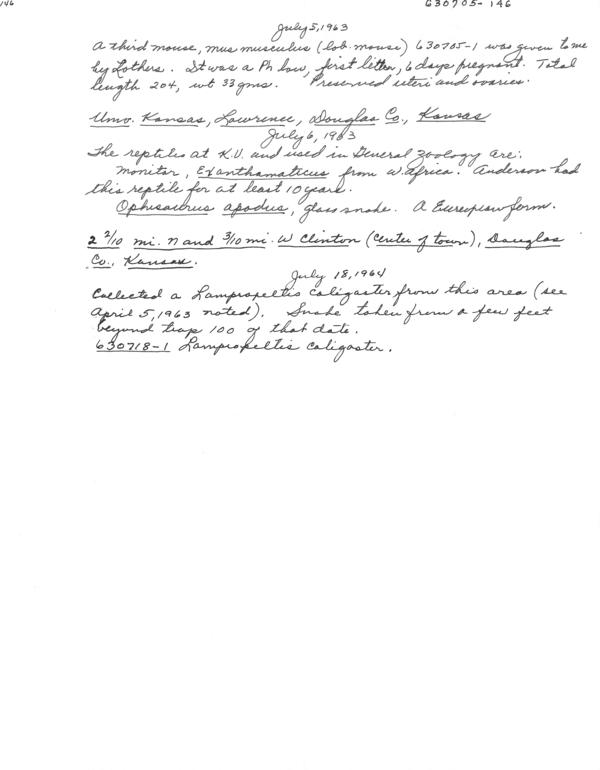 146
630705-146
July 5, 1963
A third mouse, mus musculus (lab. mouse) 630705-1 was given to me
by Lothers. It was a Ph low, first litter, 6 days pregnant. Total
length 204, wt 33 gms. Preserved uteri and ovaries.
Univ. Kansas, Lawrence, Douglas Co., Kansas
July 6, 1963
The reptiles at K.U. and used in General Zoology are:
Monitor, Exanthamaticus from W. Africa. Anderson had
this reptile for at least 10 years.
Ophisaurus apodus, glass snake. A European form.
2 2/10 mi. N and 3/10 mi. W Clinton (Center of town), Douglas
Co., Kansas.
July 18, 1964
Collected a Lampropeltis caligaster from this area (see
April 5, 1963 noted). Snake taken from a few feet
beyond trap 100 of that date.
630718-1 Lampropeltis caligaster.